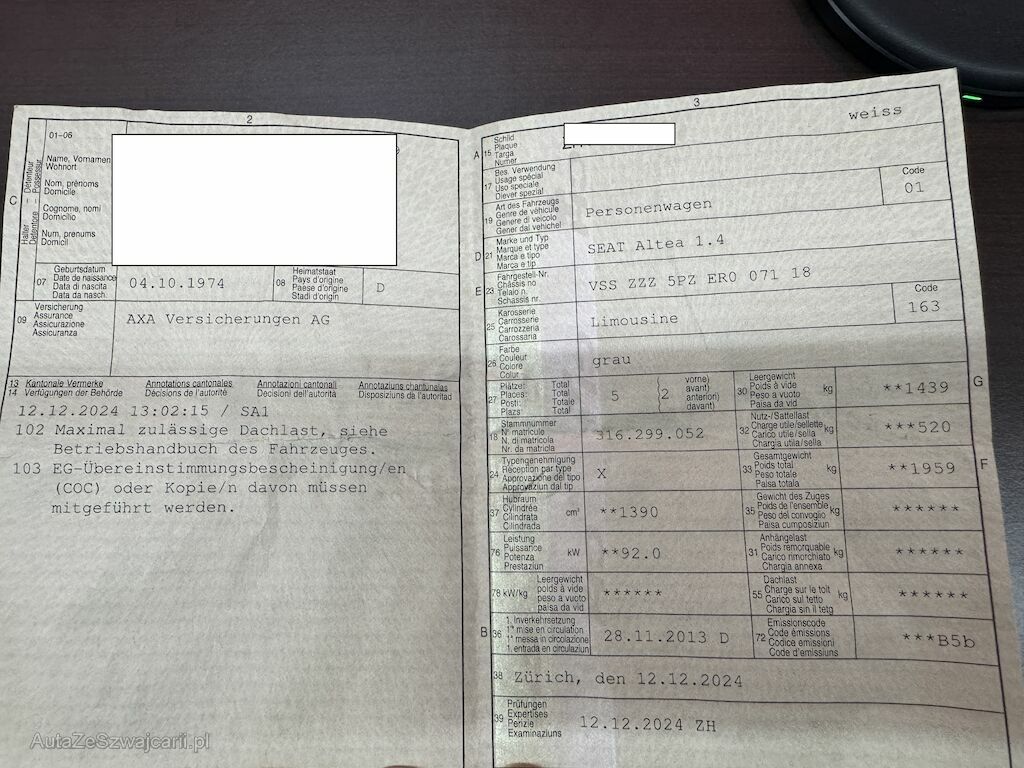 2
01-06
C
Halter – Détenteur
Detentore – Possessur
Name, Vornamen
Wohnort
Nom, prénoms
Domicile
Cognome, nomi
Domicilio
Num, prenums
Domicil
07
Geburtsdatum
Date de naissance
Data di nascita
Data da nasch.
04.10.1974
08
Heimatstaat
Pays d'origine
Paese d'origine
Stadi d'origin
D
09
Versicherung
Assurance
Assicurazione
Assicuranza
AXA Versicherungen AG
13 Kantonale Vermerke Annotations cantonales Annotazioni cantonali Annotaziuns chantunalas
14 Verfügungen der Behörde Décisions de l'autorité Decisioni dell'autorità Disposiziuns da l'autoritad
12.12.2024 13:02:15 / SA1
102 Maximal zulässige Dachlast, siehe
Betriebshandbuch des Fahrzeuges.
103 EG-Übereinstimmungsbescheinigung/en
(COC) oder Kopie/n davon müssen
mitgeführt werden.
3
A
15
Schild
Plaque
Targa
Numer
weiss
17
Bes. Verwendung
Usage spécial
Uso speciale
Diever spezial
19
Art des Fahrzeugs
Genre de véhicule
Genere di veicolo
Gener dal vehichel
Personenwagen
Code
01
D
21
Marke und Typ
Marque et type
Marca e tipo
Marca e tip
SEAT Altea 1.4
E
23
Fahrgestell-Nr.
Châssis no
Telaio n.
Schassis nr.
VSS ZZZ 5PZ ER0 071 18
25
Karosserie
Carrosserie
Carrozzeria
Carossaria
Limousine
Code
163
26
Farbe
Couleur
Colore
Colur
grau
27
Plätze: Total
Places: Total
Posti: Totale
Plazs: Total
5
(2
vorne)
avant)
anteriori)
davant)
30
Leergewicht
Poids à vide
Peso a vuoto
Paisa da vid
kg
**1439
G
18
Stammnummer
N° matricule
N. di matricola
Nr. da matricla
316.299.052
32
Nutz-/Sattellast
Charge utile/sellette
Carico utile/sella
Chargia utila/sella
kg
***520
24
Typengenehmigung
Réception par type
Approvazione del tipo
Approvaziun dal tip
X
33
Gesamtgewicht
Poids total
Peso totale
Paisa totala
kg
**1959
F
37
Hubraum
Cylindrée
Cilindrata
Cilindrada
cm³
**1390
35
Gewicht des Zuges
Poids de l'ensemble
Peso del convoglio
Paisa cumposiziun
kg
******
76
Leistung
Puissance
Potenza
Prestaziun
kW
**92.0
31
Anhängelast
Poids remorquable
Carico rimorchiato
Chargia annexa
kg
******
78 kW/kg
Leergewicht
poids à vide
peso a vuoto
paisa da vid
******
55
Dachlast
Charge sur le toit
Carico sul tetto
Chargia sin il tetg
kg
******
B
36
1. Inverkehrsetzung
1re mise en circulation
1a messa in circolazione
1. entrada en circulaziun
28.11.2013 D
72
Emissionscode
Code émissions
Codice emissioni
Code d'emissiuns
***B5b
38
Zürich, den 12.12.2024
39
Prüfungen
Expertises
Perizie
Examinaziuns
12.12.2024 ZH
AutaZeSzwajcarii.pl